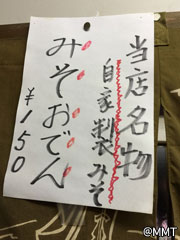 当店名物
自家製みそ
みそおでん
¥150
@MMT